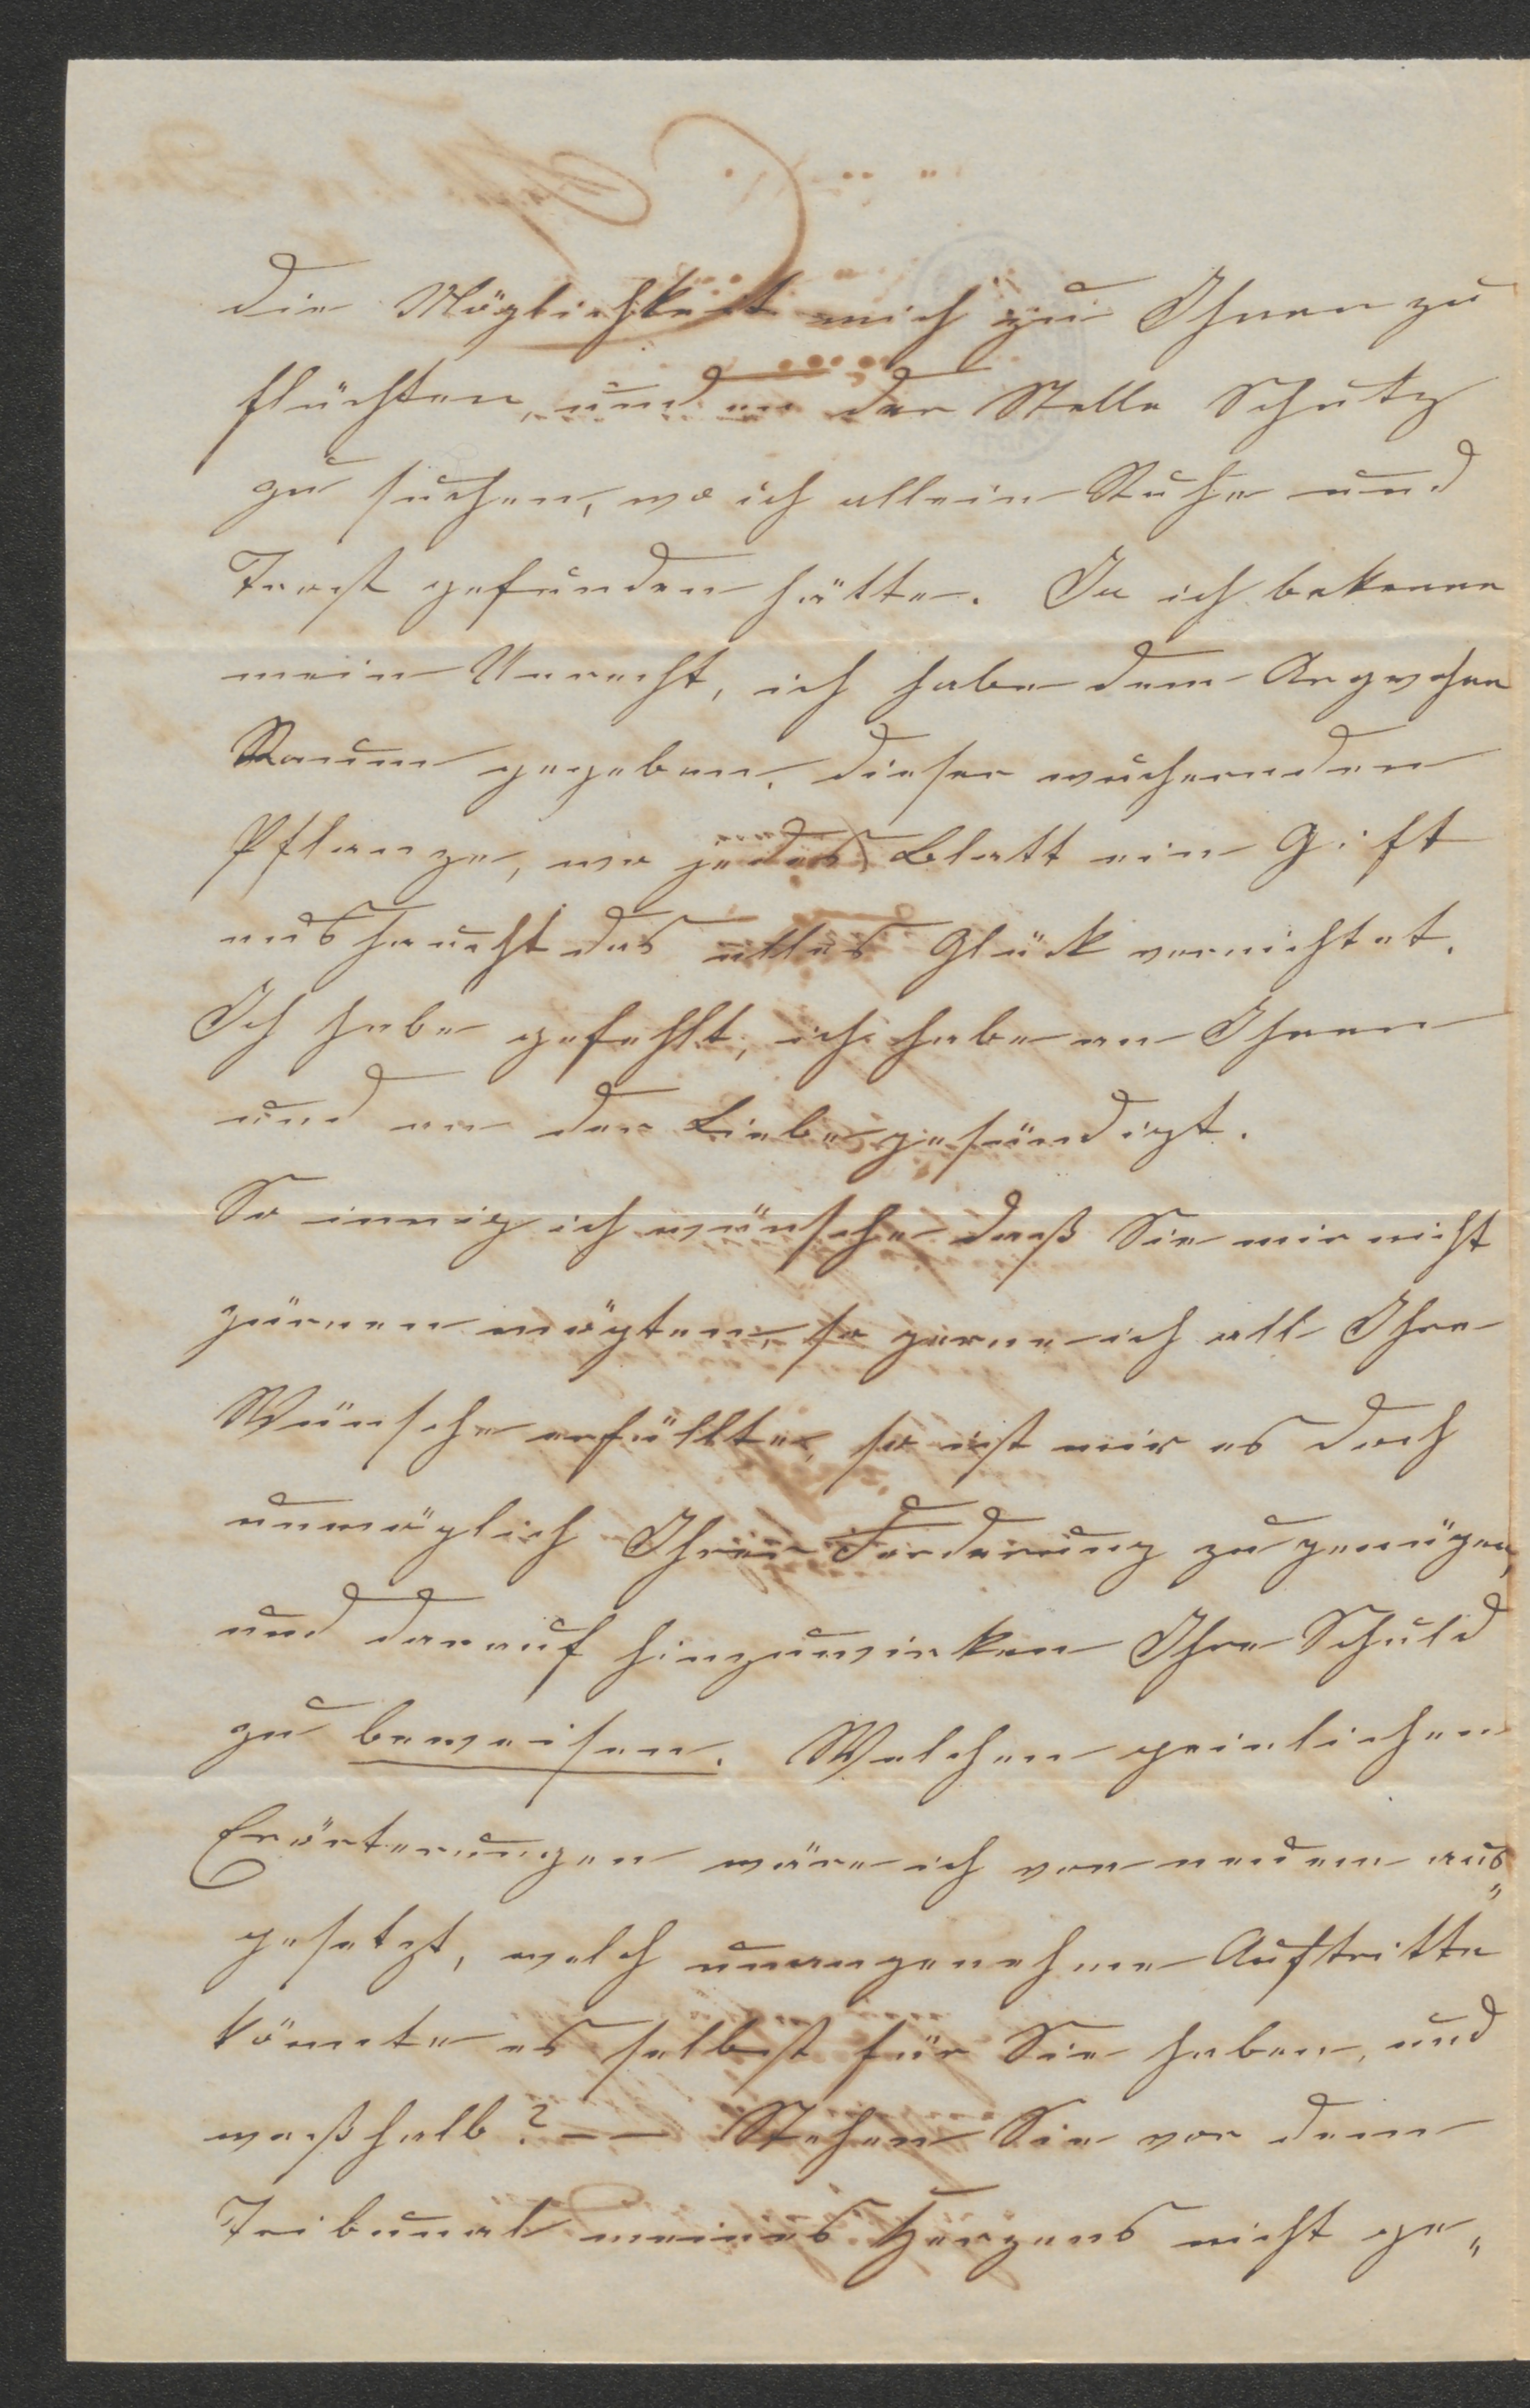 die Möglichkeit mich zu Ihnen zu
flüchten, und an der Stelle Schutz
zu suchen, wo ich allein Ruhe und
Trost gefunden hätte. Ja ich bekenne
mein Unrecht, ich habe dem Argwohn
Raum gegeben, dieser wuchernden
Pflanze, wo jedes Blatt ein Gift
aushaucht das alles Glück vernichtet.
Ich habe gefehlt, ich habe an Ihnen
und an der Liebe gesündigt.
So innig ich wünsche daß Sie mir nicht
zürnen mögten, so gerne ich all Ihre
Wünsche erfüllte, so ist mir es doch
unmöglich Ihrer Forderung zu genügen,
und darauf hinzuwirken Ihre Schuld
zu beweisen. Welchen peinlichen
Erörterungen wäre ich von neuem aus„
gesetzt, welch unangenehme Auftritte
könnte es selbst für Sie haben, und
weßhalb? –– Stehen Sie vor dem
Tribunal meines Herzens nicht ge„